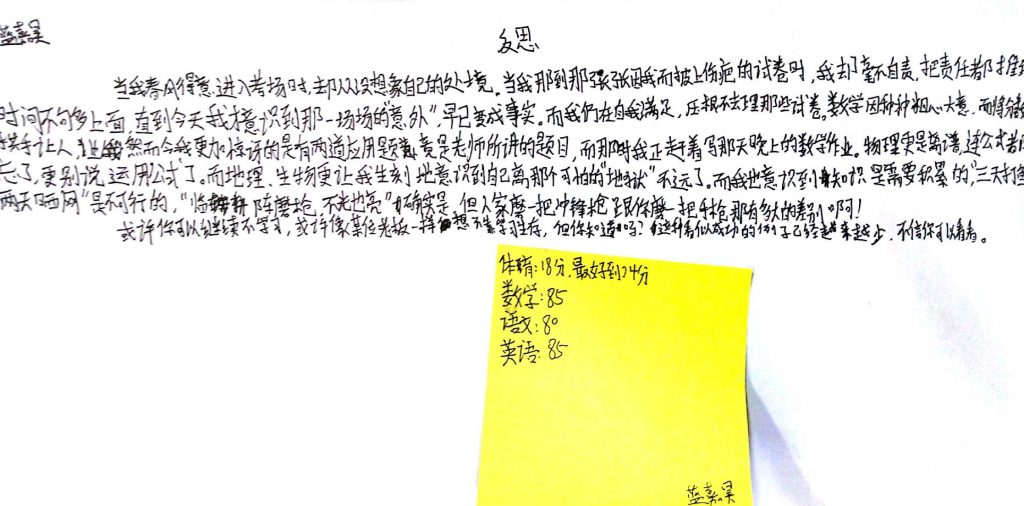 蓝嘉昊
反思
当我春风得意,进入考场时,却从没想象自己的处境。当我那到那张张因我而被上伤疤的试卷时,我却毫不自责,把责任都推到
时间不够多上面,直到今天我才意识到那一场场的"意外",早已变成事实。而我们在自我满足,压根不去理那些试卷。数学因种种粗心大意,而将
拱手让人,然而令我更加惊讶的是有两道应用题竟是老师所讲的题目,而那时我正赶着写那天晚上的数学作业。物理更是离谱,连公式都
忘了,更别说运用公式了。而地理、生物更让我生刻地意识到自己离那个可怕的"地狱"不远了。而我也意识到知识是需要积累的,"三天打鱼
两天晒网"是不可行的,"临阵磨枪,不光也亮"确实是,但人家磨一把冲锋枪跟你磨一把手枪那有多大的差别啊!
或许你可以继续不学习,或许像某位老板一样想不靠学习生存,但你知道吗?这种看似成功的例子已经越来越少,不信你可以看看。
体育:18分,最好到24分
数学:85
语文:80
英语:85
蓝嘉昊